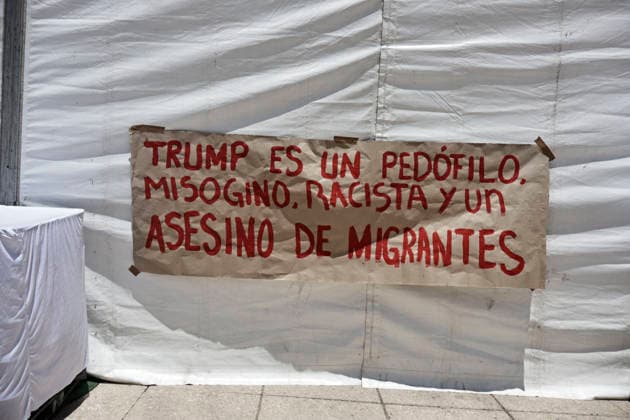 TRUMP ES UN PEDÓFILO,
MISOGINO, RACISTA Y UN
ASESINO DE MIGRANTES